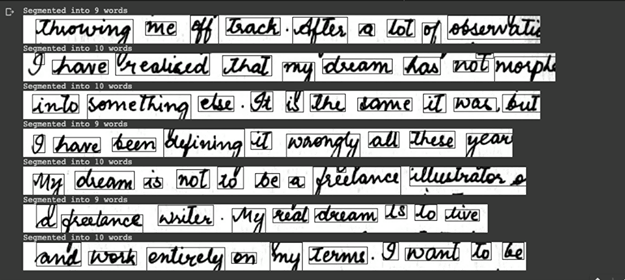 Segmented into 9 words
throwing me off track. After a lot of observatio
Segmented into 10 words
I have realised that my dream has not morph
Segmented into 10 words
into something else. It is the same it was, but
Segmented into 9 words
I have been defining it wrongly all these year
Segmented into 10 words
My dream is not to be a freelance illustrator o
Segmented into 9 words
a freelance writer. My real dream is to live
Segmented into 10 words
and work entirely on my terms. I want to be